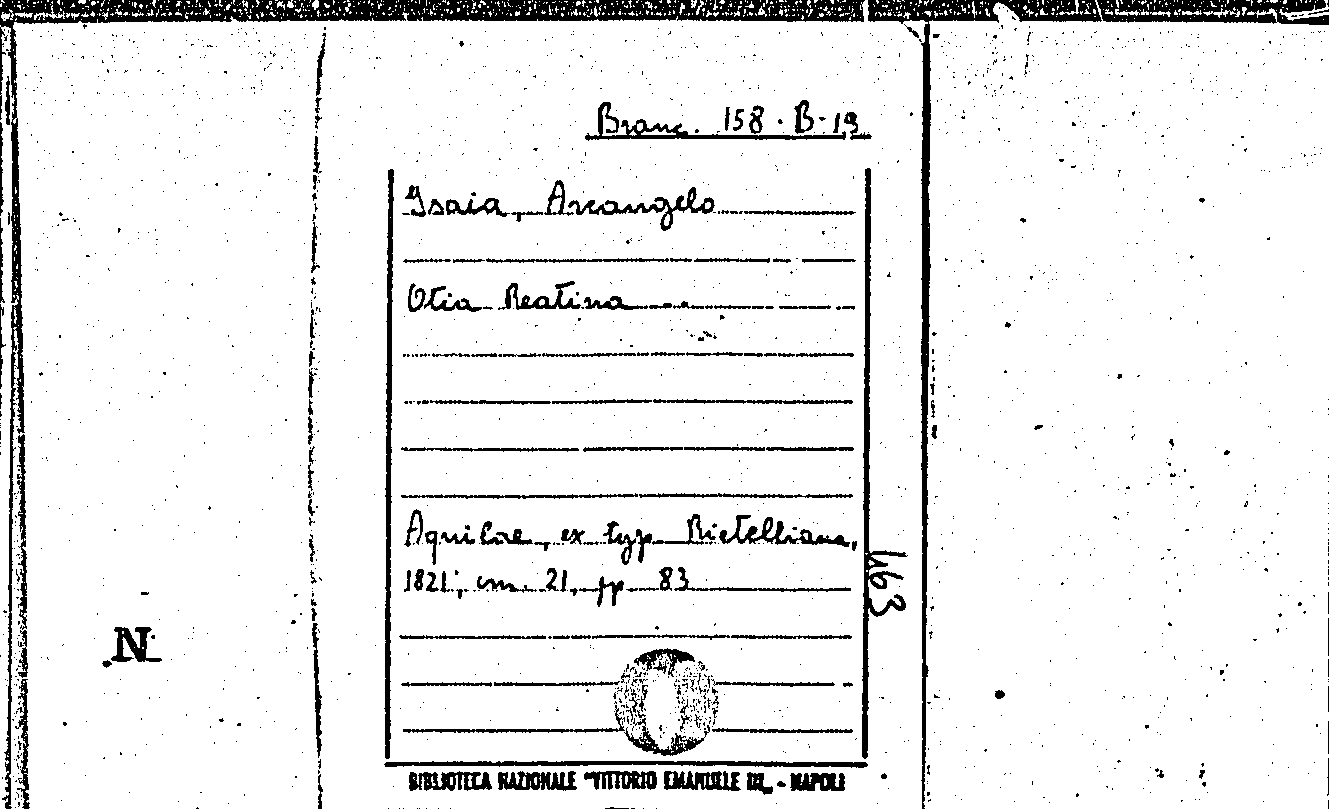 Branc. 158 · B-19
Isaia, Arcangelo
Otia Reatina ...
Aquilae, ex typ. Rietelliana,
1821; cm. 21, pp 83
463
N
BIBLIOTECA NAZIONALE "VITTORIO EMANUELE III„ - NAPOLI